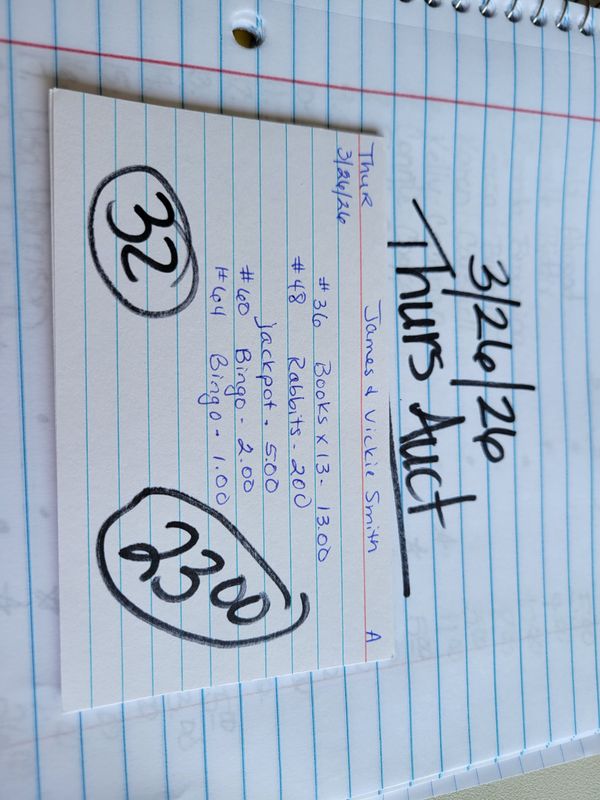 3/26/26
Thurs Auct
Thur James & Vickie Smith A
3/26/26
#36 Books x 13 - 13.00
#48 Rabbits - 200
Jackpot - 5.00
#60 Bingo - 2.00
#64 Bingo - 1.00
32
2300